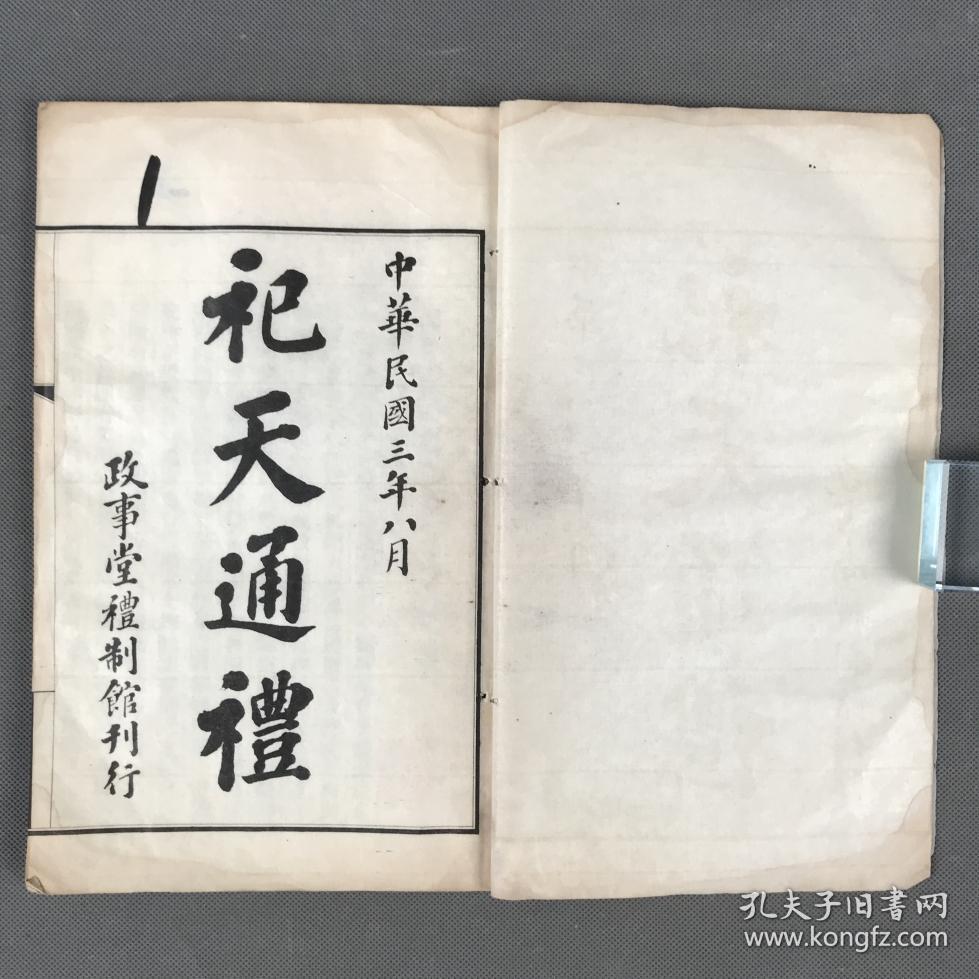 中華民國三年八月
祀天通禮
政事堂禮制館刊行
孔夫子旧书网
www.kongfz.com